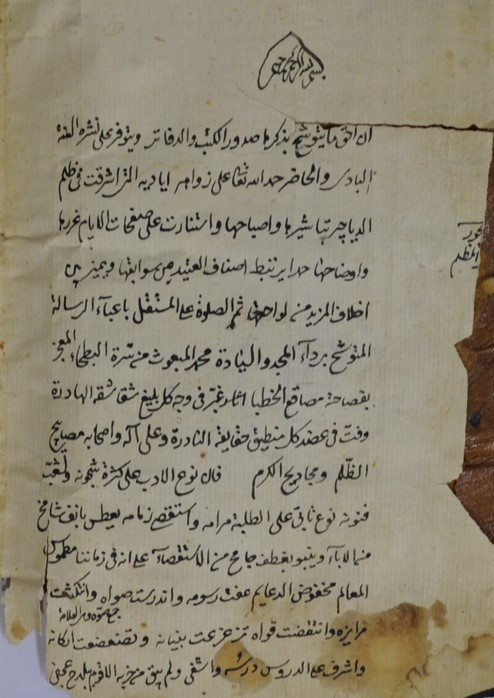 بسم الله الرحمن الرحيم
ان احق ما يتوشح بذكرها صدور الكتب والدفاتر ويتوفر على نشره
البادى والحاضر حمد الله تعالى على زواهر اياديه التى اشرقت فى ظلم
الدياجير تباشيرها واصباحها واستنارت على صفحات الايام غررها
واوضاحها حمدا يرتبط اصناف العتيد من سوابقها ويمترى
اخلاف المزيد من لواحقها ثم الصلوة على المستقل باعباء الرسالة
المتوشح برداء المجد والسيادة محمد المبعوث من سرة البطحاء المعجز
بفصاحته مصاقع الخطباء اثار غبر فى وجه كل بليغ شقاشقه الهادرة
وفت فى عضد كل منطيق حقايقه النادرة وعلى آله واصحابه مصابيح
الظلم ومجاديح الكرم فان نوع الادب على كثرة شجونه وتشعب
فنونه نوع نابى على الطلبة مرامه واستقصى زمامه يعطس بانف شامخ
من الاباء وينبو بعطف جامح من الاستقصاء على انه فى زماننا مطموس
المعالم مخفوض الدعايم عفت رسومه واندرست صواه وانتكثت
مرايره وانتقضت قواه تزعزعت بنيانه وتضعضعت اركانه
واشرف على الدروس درسه واشفى ولم يبق من حزبه الا قوم